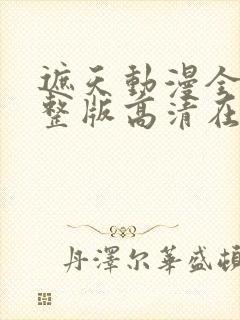 遮天動漫全
整版高清在
丹澤尔華盛頓